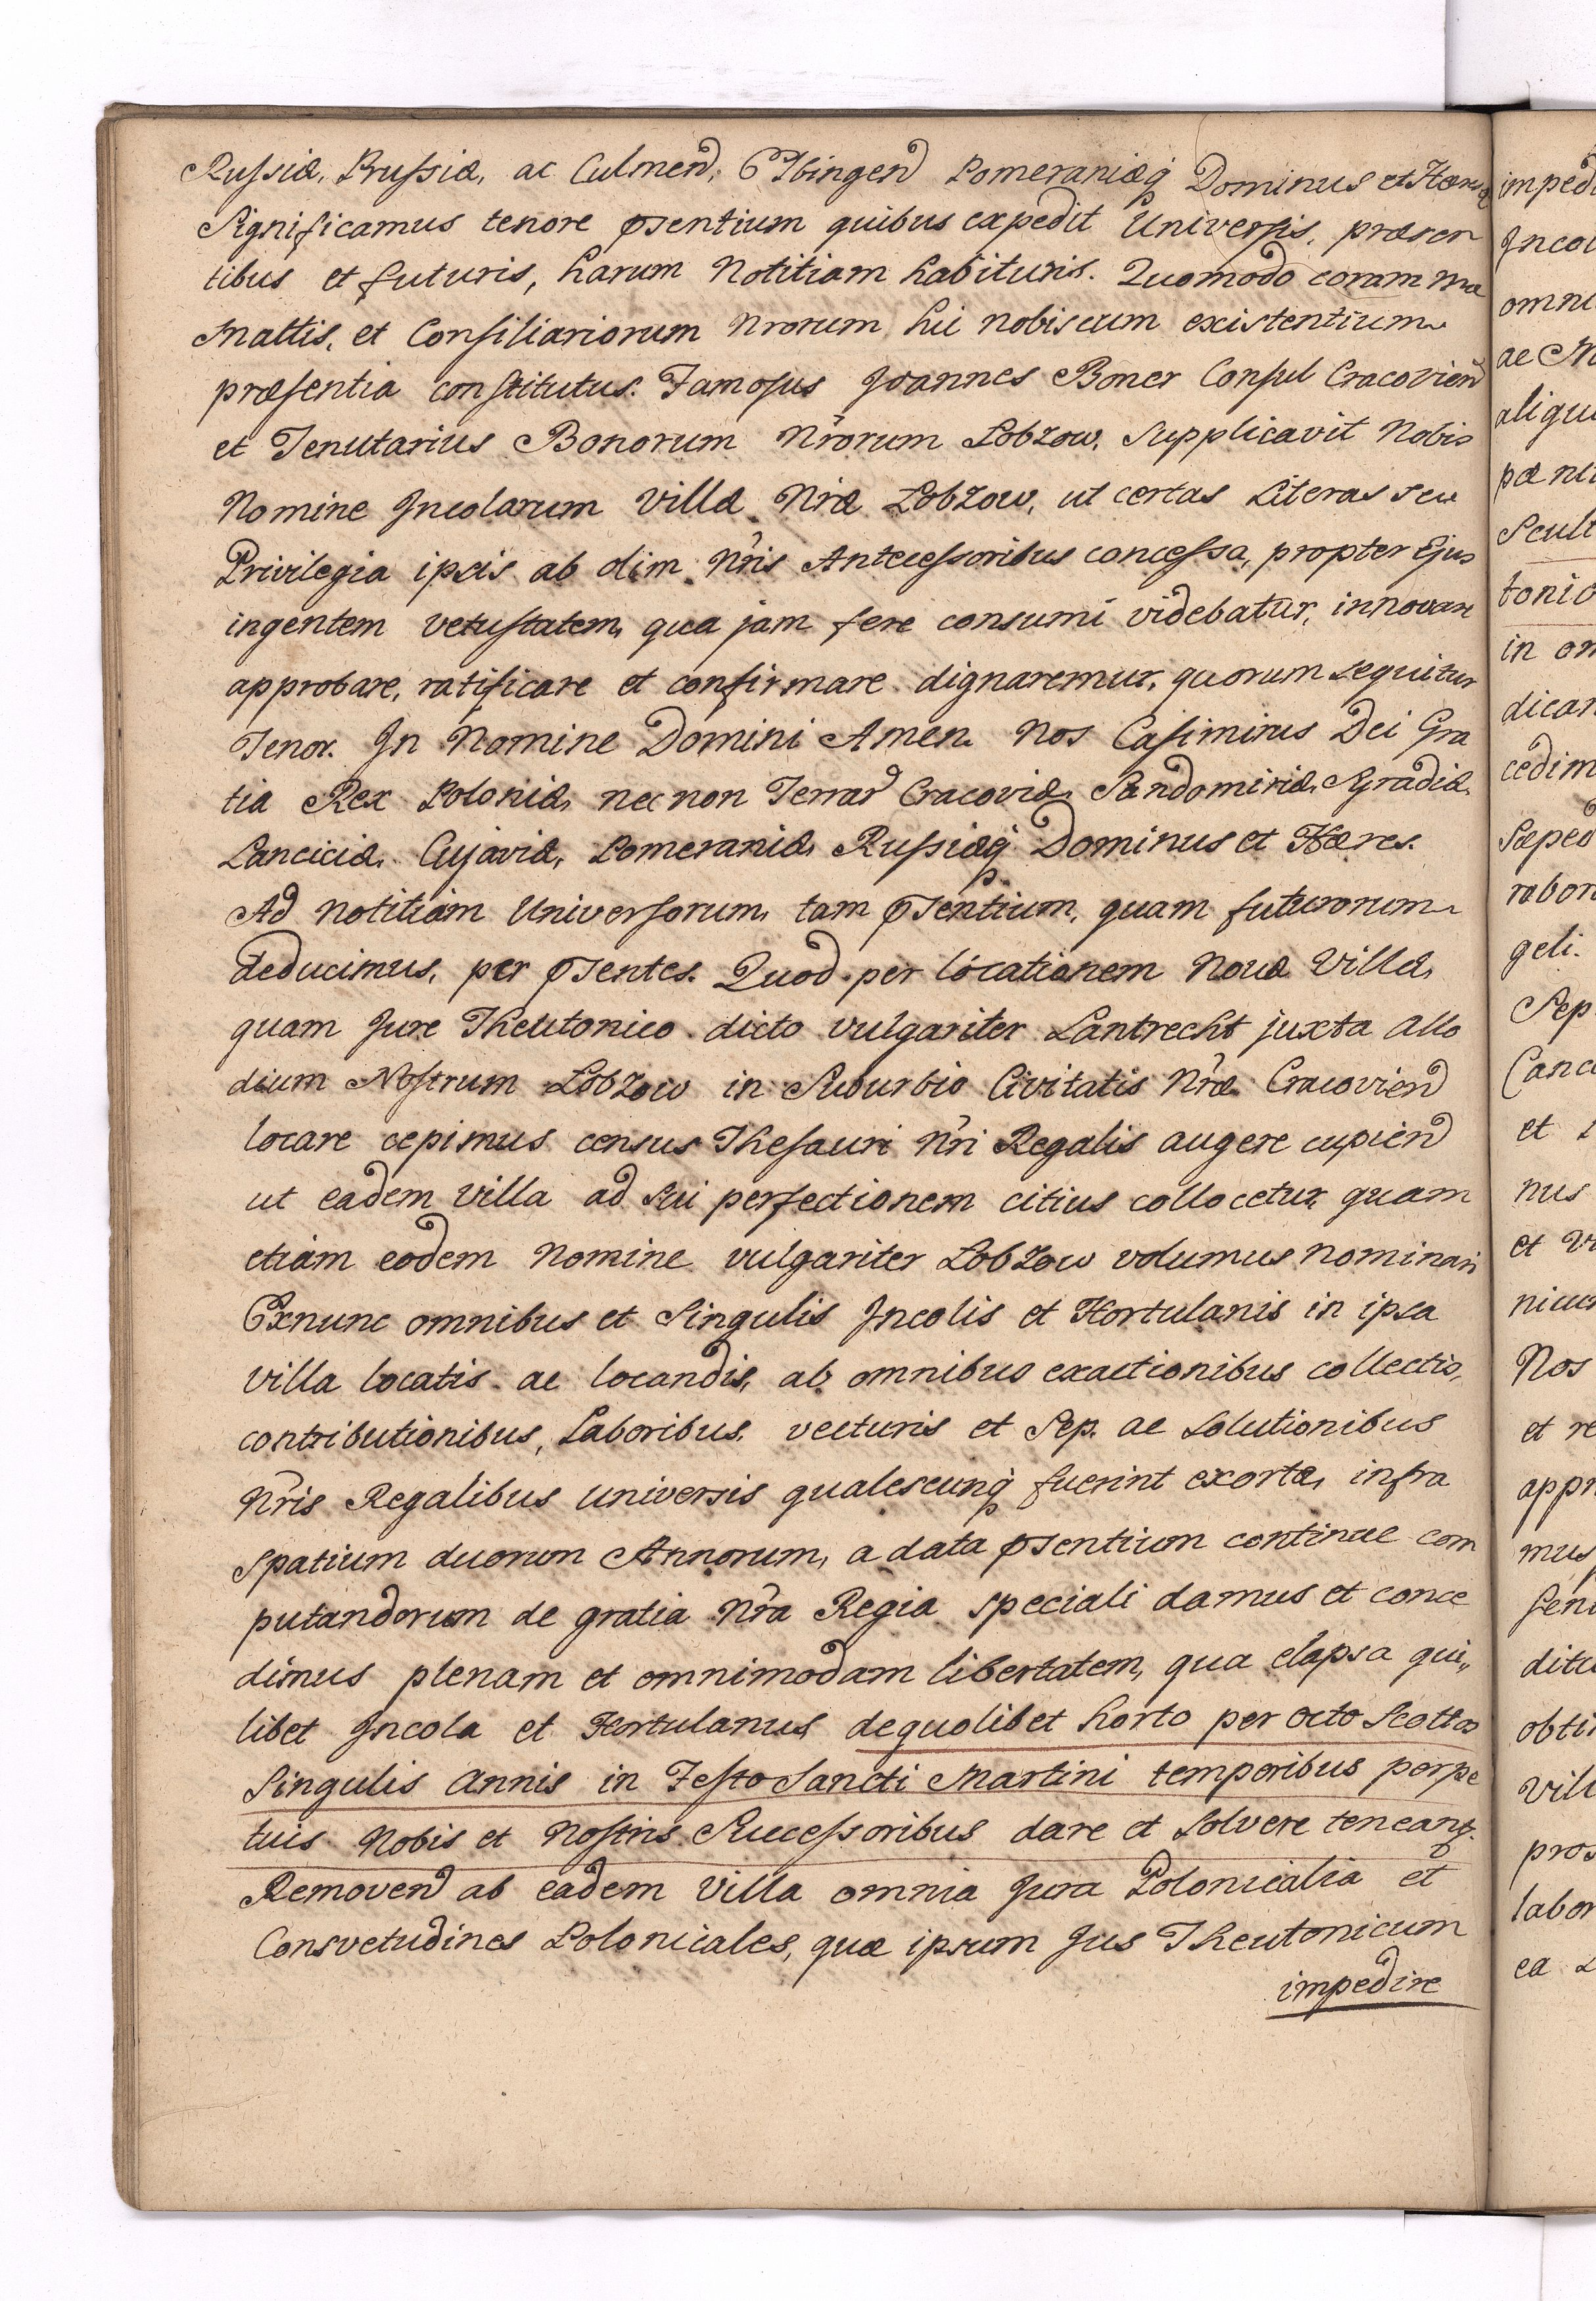 Russiæ, Prussiæ, ac Culmen̄, Elbingen̄ Pomeraniæq̃ Dominus et Hæres
Significamus tenore p̄sentium quibus expedit Universis, præsen
tibus et futuris, harum Notitiam habituris. Quomodo coram ma
Mattis, et Consiliariorum Nrorum hic nobiscum existentium
præsentia constitutus. Famosus Joannes Boner Consul Cracovien̄
et Tenutarius Bonorum Nr̃orum Lobzow, Supplicavit Nobis
Nomine Incolarum Villæ Nr̃æ Lobzow, ut certas Literas seu
Privilegia ipsis ab olim Nr̃is Antecessoribus concessa, propter Ejus
ingentem vetustatem, qua jam fere consumi videbatur, innovare
approbare, ratificare et confirmare dignaremur, quorum sequitur
Tenor. In Nomine Domini Amen. Nos Casimirus Dei Gra
tia Rex Poloniæ, nec non Terrar̄ Cracoviæ, Sandomiriæ, Syradiæ,
Lanciciæ, Cujaviæ, Pomeraniæ, Russiæq̃ Dominus et Hæres.
Ad notitiam Universorum, tam p̄sentium, quam futurorum
deducimus, per p̄sentes. Quod per locationem Novæ Villæ,
quam Jure Theutonico dicto vulgariter Lantrecht juxta Allo
dium Nostrum Lobzow in Suburbio Civitatis Nr̃æ Cracovien̄
locare cepimus census Thesauri Nr̃i Regalis augere cupien̄
ut eadem Villa ad sui perfectionem citius collocetur quam
etiam eodem Nomine vulgariter Lobzow volumus nominari
Exnunc omnibus et Singulis Incolis et Hortulanis in ipsa
Villa locatis ac locandis, ab omnibus exactionibus collectis,
contributionibus, Laboribus, vecturis et Sep. ac Solutionibus
Nr̃is Regalibus universis qualescunq̃ fuerint exortæ, infra
Spatium duorum Annorum, a data p̄sentium continue com
putandorum de gratia Nr̃a Regia speciali damus et conce
dimus plenam et omnimodam libertatem, qua elapsa qui„
libet Incola et Hortulanus de quolibet horto per octo Scottos
Singulis Annis in Festo Sancti Martini temporibus perpe
tuis Nobis et Nostris Successoribus dare et Solvere teneant̃.
Removen̄ ab eadem Villa omnia Jura Polonicalia et
Consvetudines Polonicales, quæ ipsum Jus Theutonicum
impedire